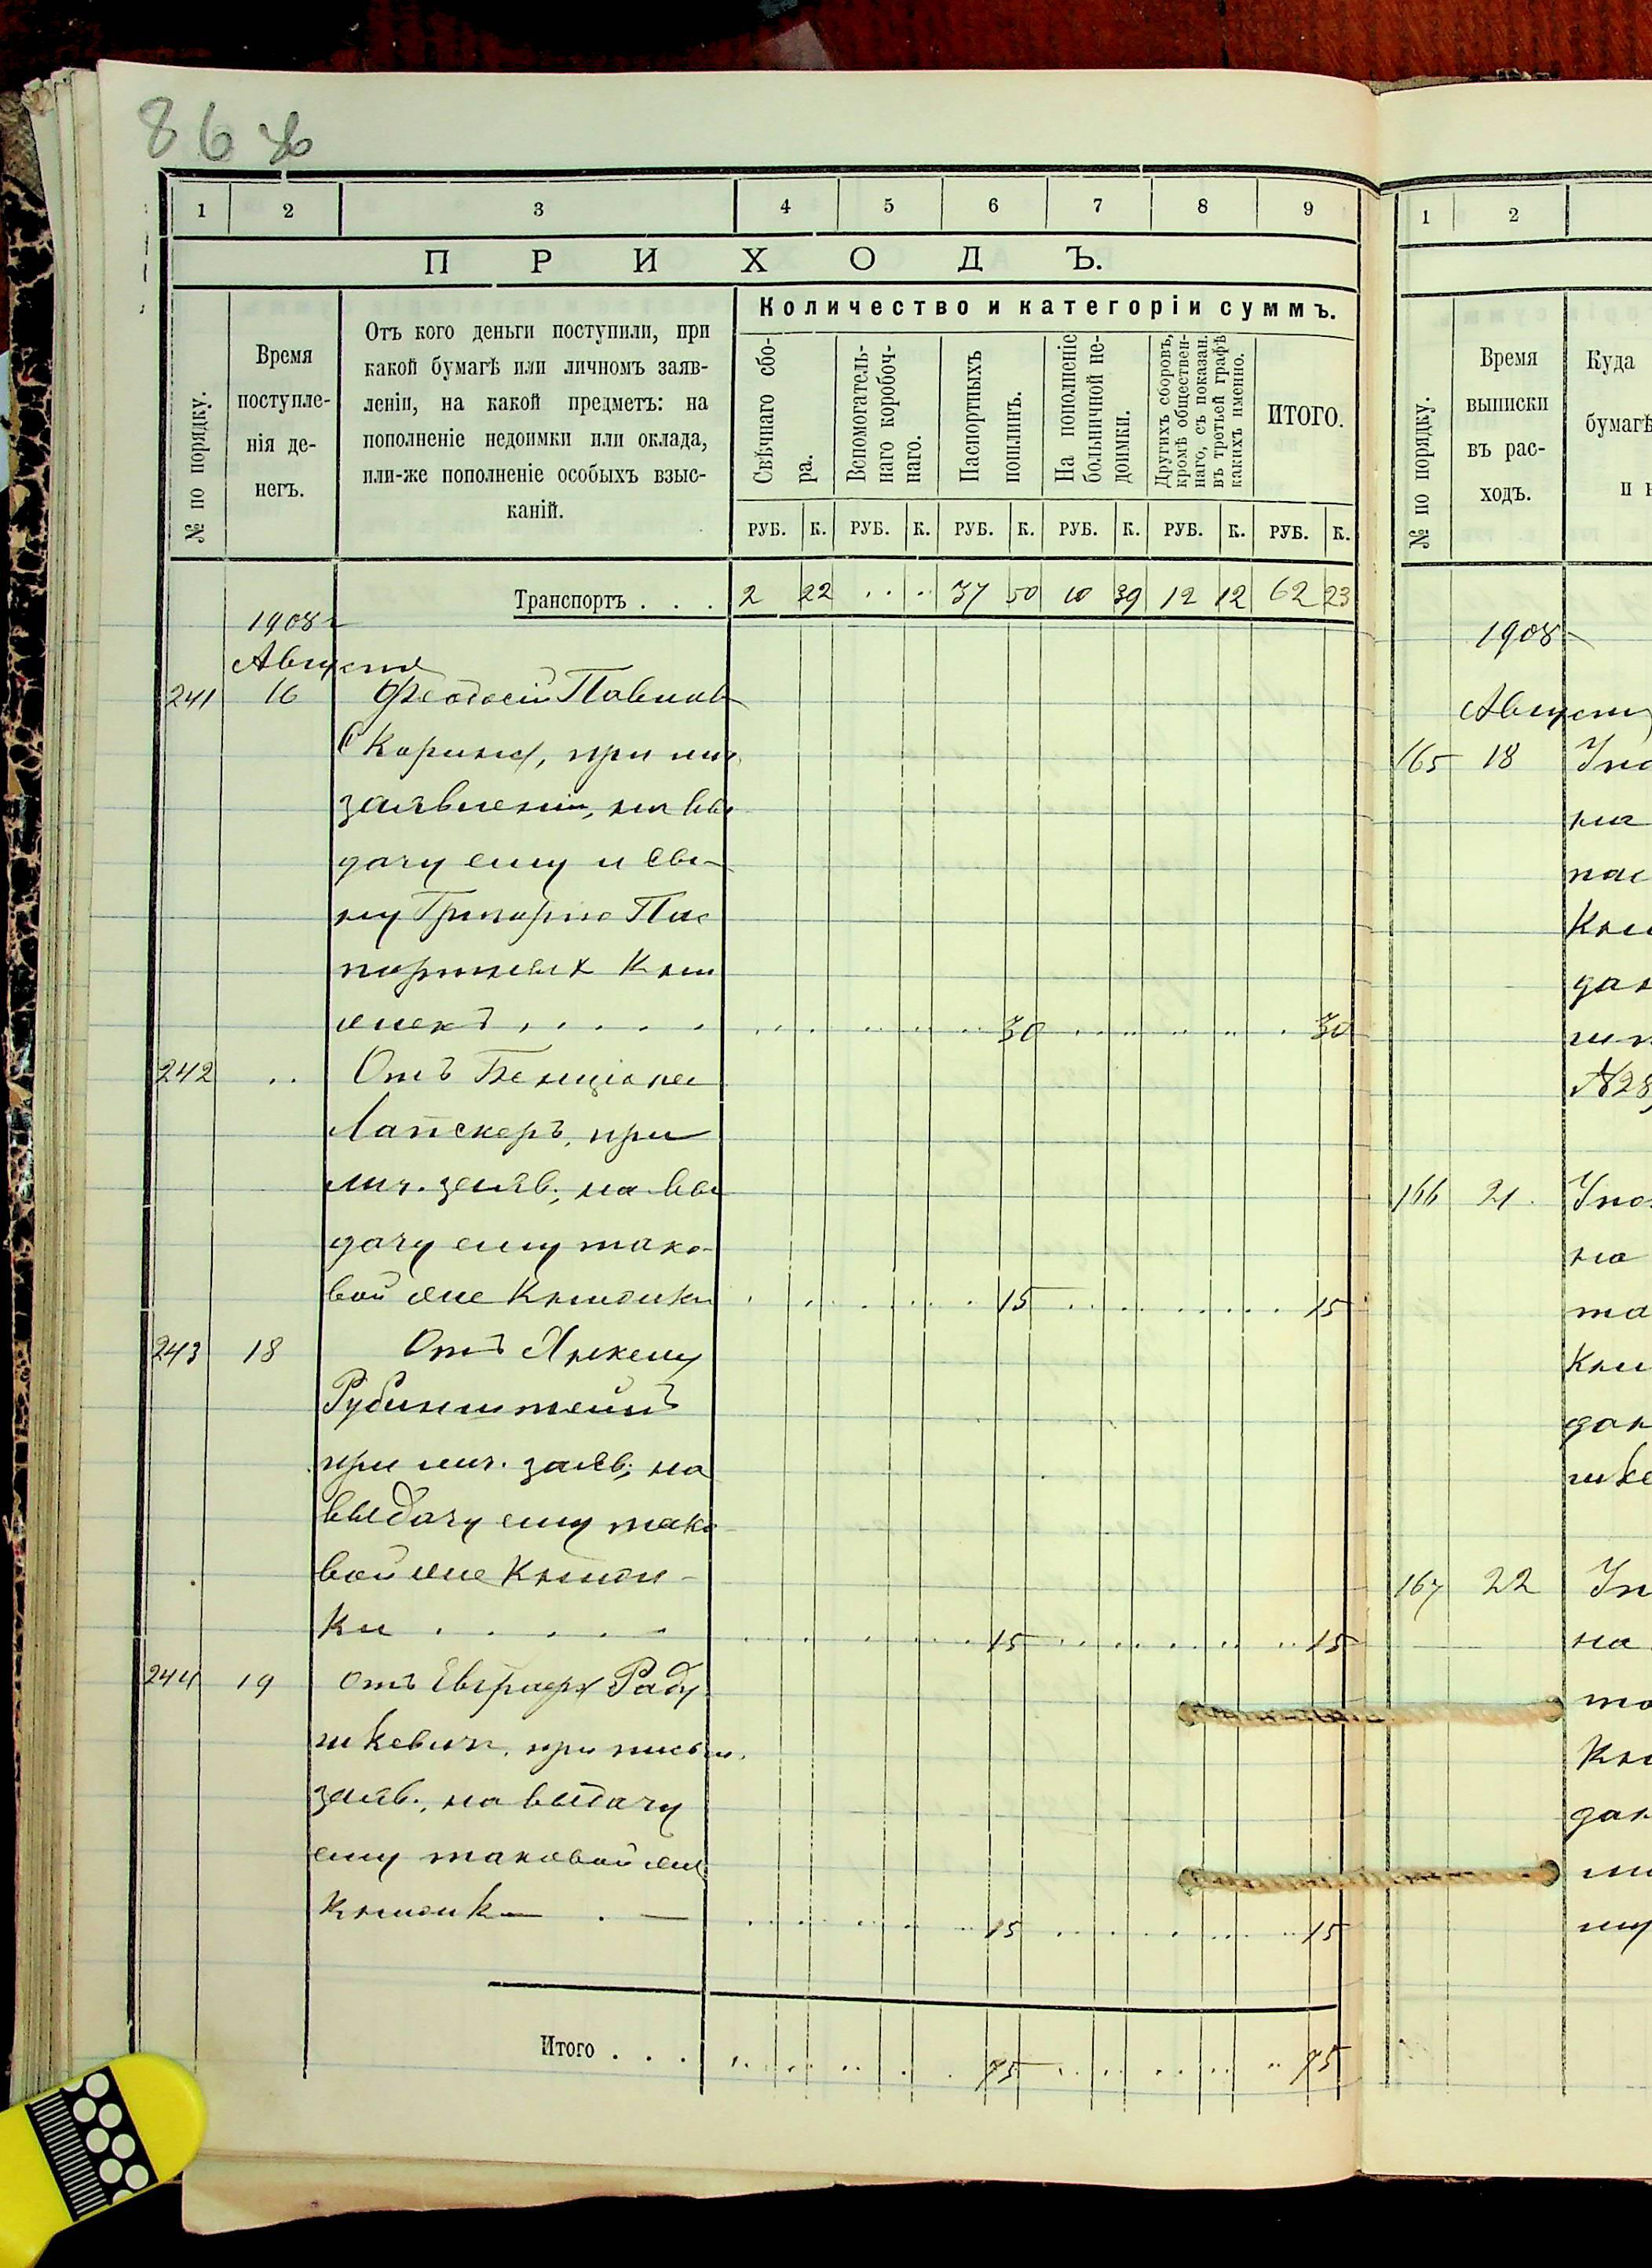 86
1 2 3 4 5 6 7 8 9
ПРИХОДЪ.
№ по порядку.
Время
поступле-
нія де-
негъ.
Отъ кого деньги поступили, при
какой бумагѣ или личномъ заяв-
леніи, на какой предметъ: на
пополненіе недоимки или оклада,
или-же пополненіе особыхъ взыс-
каній.
Количество и категоріи суммъ.
Свѣчнаго сбо-
ра.
Вспомогатель-
наго коробоч-
наго.
Паспортныхъ
пошлинъ.
На пополненіе
больничной не-
доимки.
Другихъ сборовъ,
кромѣ обществен-
наго, съ показан.
въ третьей графѣ
какихъ именно.
ИТОГО.
РУБ. К. РУБ. К. РУБ. К. РУБ. К. РУБ. К. РУБ. К.
Транспортъ . . . 2 22 .. .. 37 50 10 39 12 12 62 23
1908 г
Августа
241 16 Феодосій Павлов
Скорина, при лич
заявленіи, на вы
дачу ему и сы-
ну Григорію Пас
портных Кни
жекъ . . . . . 30 30
242 .. Отъ Бенціона
Лапскеръ, при
лич. заяв., на вы
дачу ему тако-
вой же Книжки 15 15
243 18 Отъ
Рубинштейнъ
при лич. заяв., на
выдачу ему тако
вой же Книж-
ки . . . . . 15 15
244 19 отъ Евграфа Раду
шкевич, при письм.
заяв., на выдачу
ему таковой же
Книжки . — 15 15
Итого . . . 75 75
1 2
№ по порядку.
Время
выписки
въ рас-
ходъ.
Куда
бумагѣ
и н
1908 г
Август
165 18
на
пас
Кни
дан
№ 28,
166 21.
на
та
Кни
дан
шке
167 22
на
та
Кни
дан